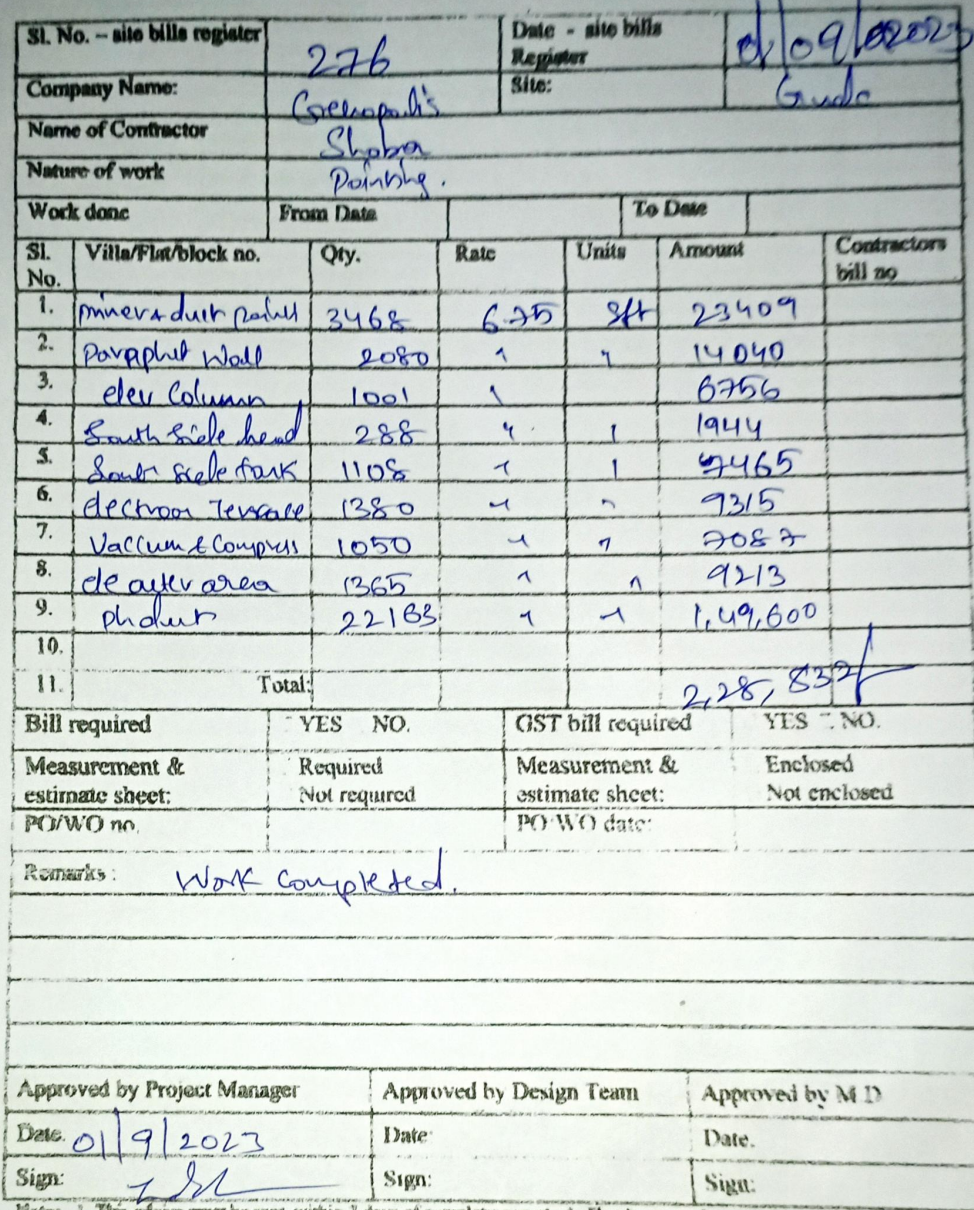 Sl. No. – site bills register 276 Date - site bills Register 01/09/2023
Company Name: Greenopolis Site: Gude
Name of Contractor Shoban
Nature of work Painting.
Work done From Date To Date
Sl. No. Villa/Flat/block no. Qty. Rate Units Amount Contractors bill no
1. duct 3468 6.75 Sft 23409
2. Parapphet Wall 2080 " " 14040
3. elev Column 1001 " 6756
4. South Side head 288 " " 1944
5. South side 1108 " " 7465
6. Terrace 1380 " " 9315
7. Vaccum & Compress 1050 " " 7087
8. area 1365 " " 9213
9. 22163 " " 1,49,600
10.
11. Total: 2,28,832/
Bill required YES NO. GST bill required YES NO.
Measurement & estimate sheet: Required Not required Measurement & estimate sheet: Enclosed Not enclosed
PO/WO no. PO WO date:
Remarks: Work Completed.
Approved by Project Manager Approved by Design Team Approved by M D
Date. 01/9/2023 Date: Date.
Sign: Sign: Sign: